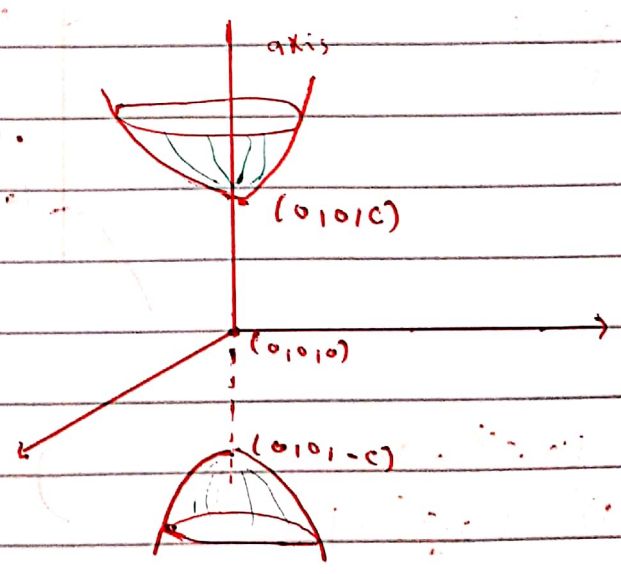 axis
(0,0,c)
(0,0,0)
(0,0,-c)